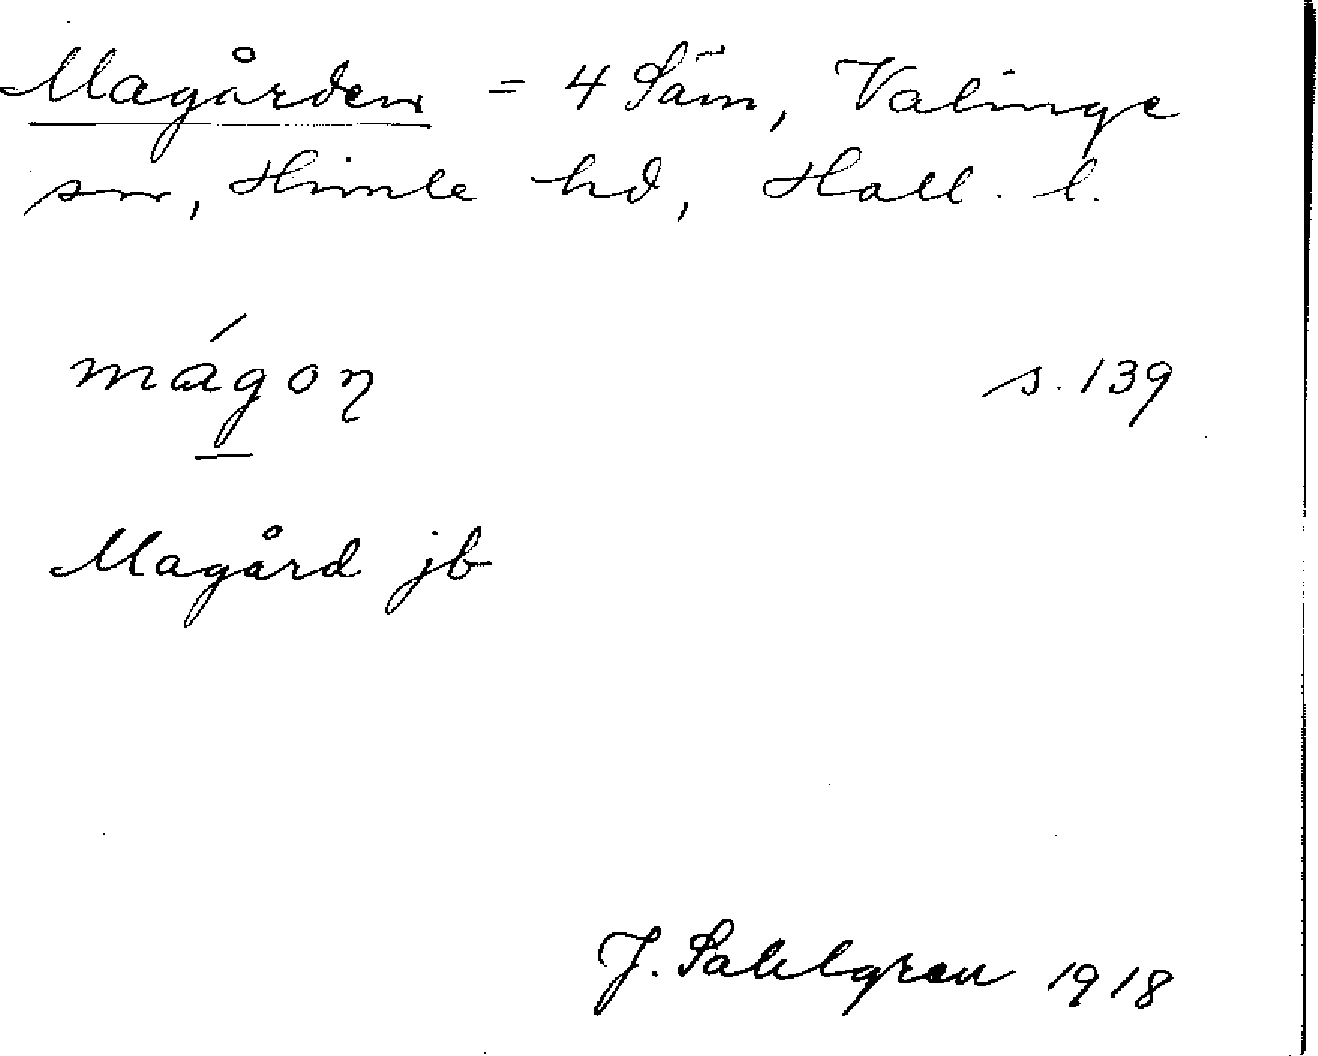 Magården = 4 Säm, Valinge
sn, Himle hd, Hall. l.
mágon s. 139
Magård jb
J. Sahlgren 1918